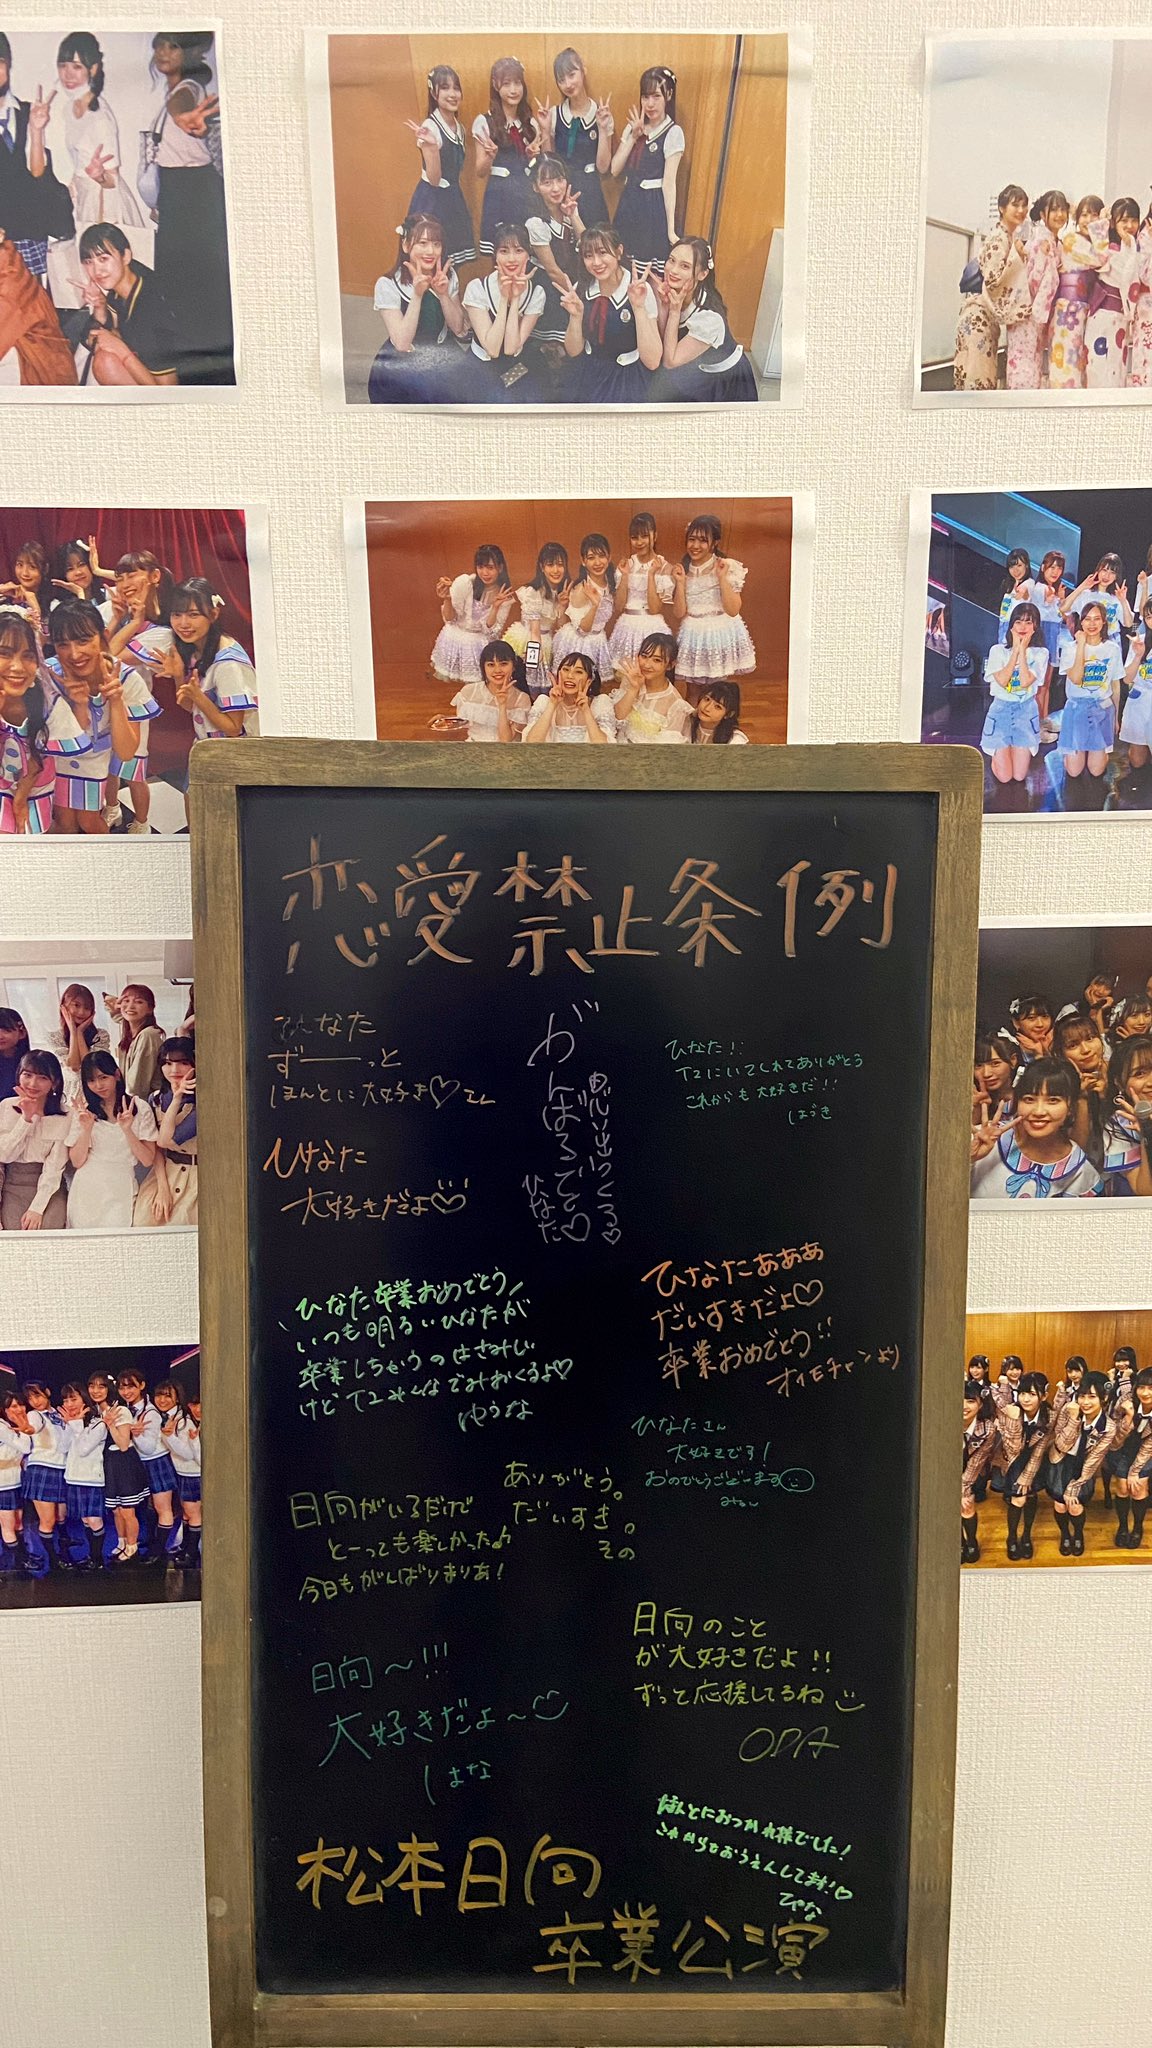 恋愛禁止条例
なた
ずーーっと
ほんとに大好き♡
がんばるぞと♡
思い出つくる♡
ひなた
ひなた!!
T2にいてくれてありがとう
これからも大好きだ!!
はづき
ひなた
大好きだよ♡
ひなた卒業おめでとう
いつも明るいひなたが
卒業しちゃうのはさみしい
けどT2みんなでみおくるよ♡
ゆうな
ひなたぁぁぁ
だいすきだよ♡
卒業おめでとう!!
オイモチャンより
ひなたさん
大好きです!
日向がいるだけで
とーっても楽しかった♪
今日もがんばりまりあ!
ありがとう。
だいすき。
その
日向のこと
が大好きだよ!!
ずっと応援してるね
ODA
日向〜!!!
大好きだよ〜
はな
ほんとにおつかれ様でした!
これからもおうえんしてます!♡
ぴな
松本日向
卒業公演